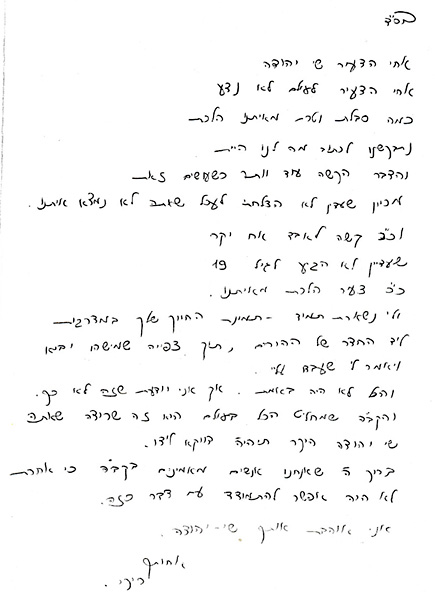 בס"ד
אחי הצעיר שי יהודה
אחי הצעיר לעולם לא נדע
כמה סבלת וטרם מאיתנו הלכת
נתבקשנו לכתוב מה לנו היית
והדבר הקשה עוד יותר כשעושים זאת
מכיוון שעדין לא הצלחתי לעכל שאתה לא נמצא איתנו.
וכ"כ קשה לאבד אח יקר
שעדיין לא הגיע לגיל 19
כ"כ צעיר הלכת מאיתנו.
ולי נשארת תמיד - תמונת החיוך שלך במדרגות
ליד החדר של ההורים, תוך צפייה שמישהו יבוא
ויאמר לי שעבד עליי.
והכל לא היה באמת. אך אני יודעת שזה לא כך.
והקב"ה שמחליט הכל בעולם הוא זה שרוצה שאתה
שי יהודה היקר תהיה דווקא לידו.
בריך ה' שאנחנו אנשים מאמינים בקב"ה כי אחרת
לא היה אפשר להתמודד עם דבר כזה.
אני אוהבת אותך שי-יהודה.
אחותך
ריקי.